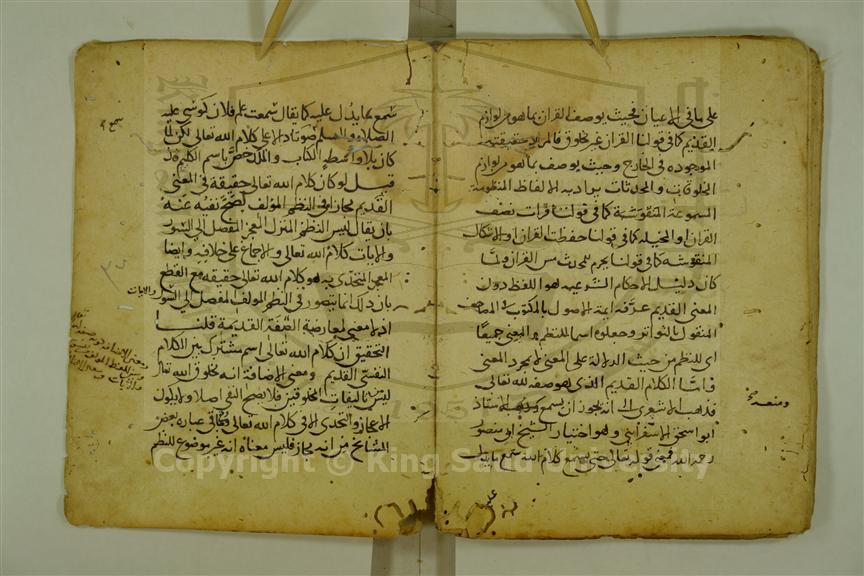 على ما في الاعيان فحيث يوصف القران بما هو من لوازم
القديم كما في قولنا القران غير مخلوق فالمراد حقيقته
الموجوده في الخارج وحيث يوصف بما هو من لوازم
المخلوقات والمحدثات يراد به الالفاظ المنظومة
المسموعة المنقوشة كما في قولنا قرات نصف
القران او المخيله كما في قولنا حفظت القران او الاشكال
المنقوشه كما في قولنا يحرم للمحدث مس القران ولما
كان دليل الاحكام الشرعيه هو اللفظ دون
المعنى القديم عرفه ايمة الاصول بالمكتوب في المصاحف
المنقول بالتواتر وجعلوه اسما للنظم والمعنى جميعا
اي للنظم من حيث الدلالة على المعنى لا لمجرد المعنى
واما الكلام القديم الذي هو صفه لله تعالى
فذهب الاشعري الى انه يجوز ان يسمع ومنعه الاستاذ
ابو اسحق الاسفرايني وهو اختيار الشيخ ابي منصور
رحمه الله فمعنى قوله تعالى حتى يسمع كلام الله يسمع ما يدل
عليه
ومنعه
سمع
سمع بما يدل عليه كما يقال سمعت علم فلان فموسى عليه
الصلاة والسلام سمع صوتا دالا على كلام الله تعالى لكن لما
كان بلا واسطه الكتاب والملك خص باسم الكليم فان
قيل لو كان كلام الله تعالى حقيقه في المعنى
القديم مجازا في النظم المؤلف لصح نفيه عنه
بان يقال ليس النظم المنزل المعجز المفصل الى السور
والايات كلام الله تعالى والاجماع على خلافه وايضا
المعجز المتحدى به هو كلام الله تعالى حقيقه مع القطع
بان ذلك انما يتصور في النظم المولف المفصل الى السور
والايات
اذ لا معنى لمعارضة الصفة القديمة قلنا
التحقيق ان كلام الله تعالى اسم مشترك بين الكلام
النفسي القديم ومعنى الاضافة انه مخلوق لله تعالى
ليس من تاليفات المخلوقين فلا يصح النفي اصلا ولا يكون
الاعجاز والتحدي الا في كلام الله تعالى وما في عباره بعض
المشايخ من انه مجاز فليس معناه انه غير موضوع للنظم
Copyright © King Saud University